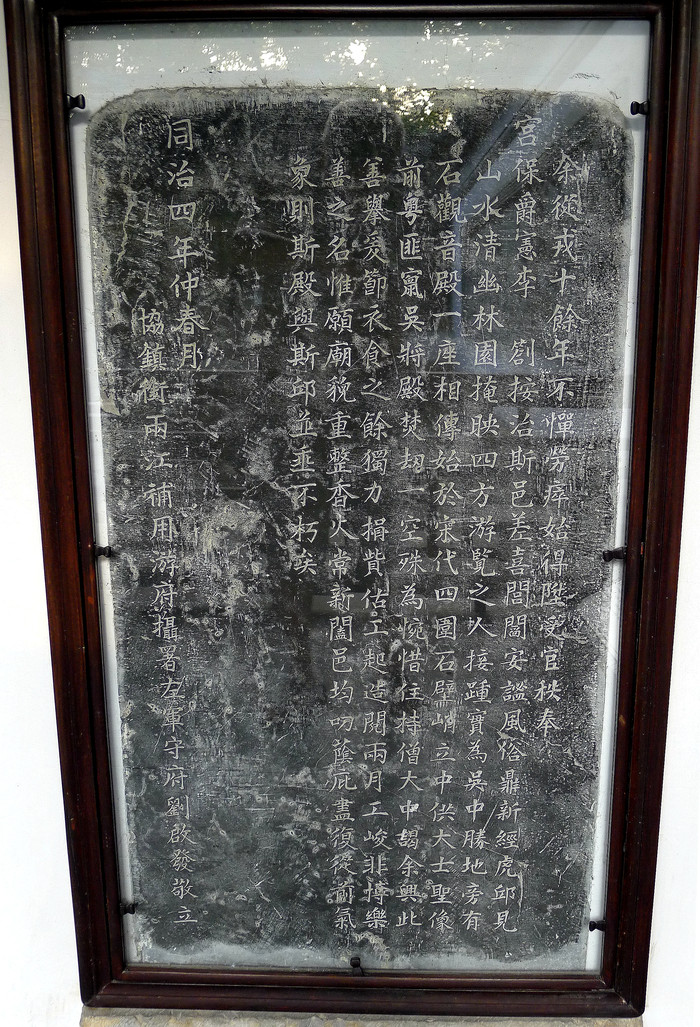 余從戎十餘年不憚勞瘁始得陞受官秩奉
宮保爵憲李 劄按治斯邑差喜閭閻安謐風俗鼎新經虎邱見
山水清幽林園掩映四方游覽之人接踵實為吳中勝地旁有
石觀音殿一座相傳始於宋代四圍石壁峭立中供大士聖像
前粵匪竄吳將殿焚劫一空殊為惋惜住持僧大中謁余興此
善舉爰節衣食之餘獨力捐貲估工起造閱兩月工峻非博樂
善之名惟願廟貌重整香火常新闔邑均叨蔭庇盡復從前氣
象則斯殿與斯邱並垂不朽矣
同治四年仲春月
協鎮銜兩江補用游府攝署左軍守府劉啟發敬立